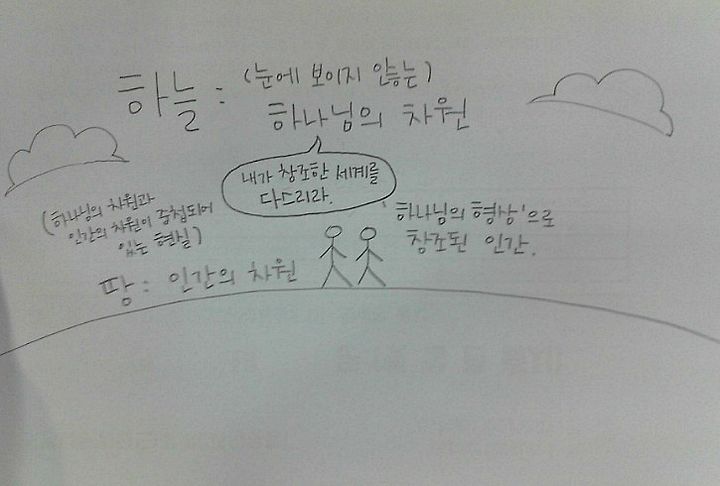 하늘 : (눈에 보이지 않는)
하나님의 차원
내가 창조한 세계를
다스리라.
(하나님의 차원과
인간의 차원이 중첩되어
있는 현실)
'하나님의 형상'으로
창조된 인간.
땅 : 인간의 차원